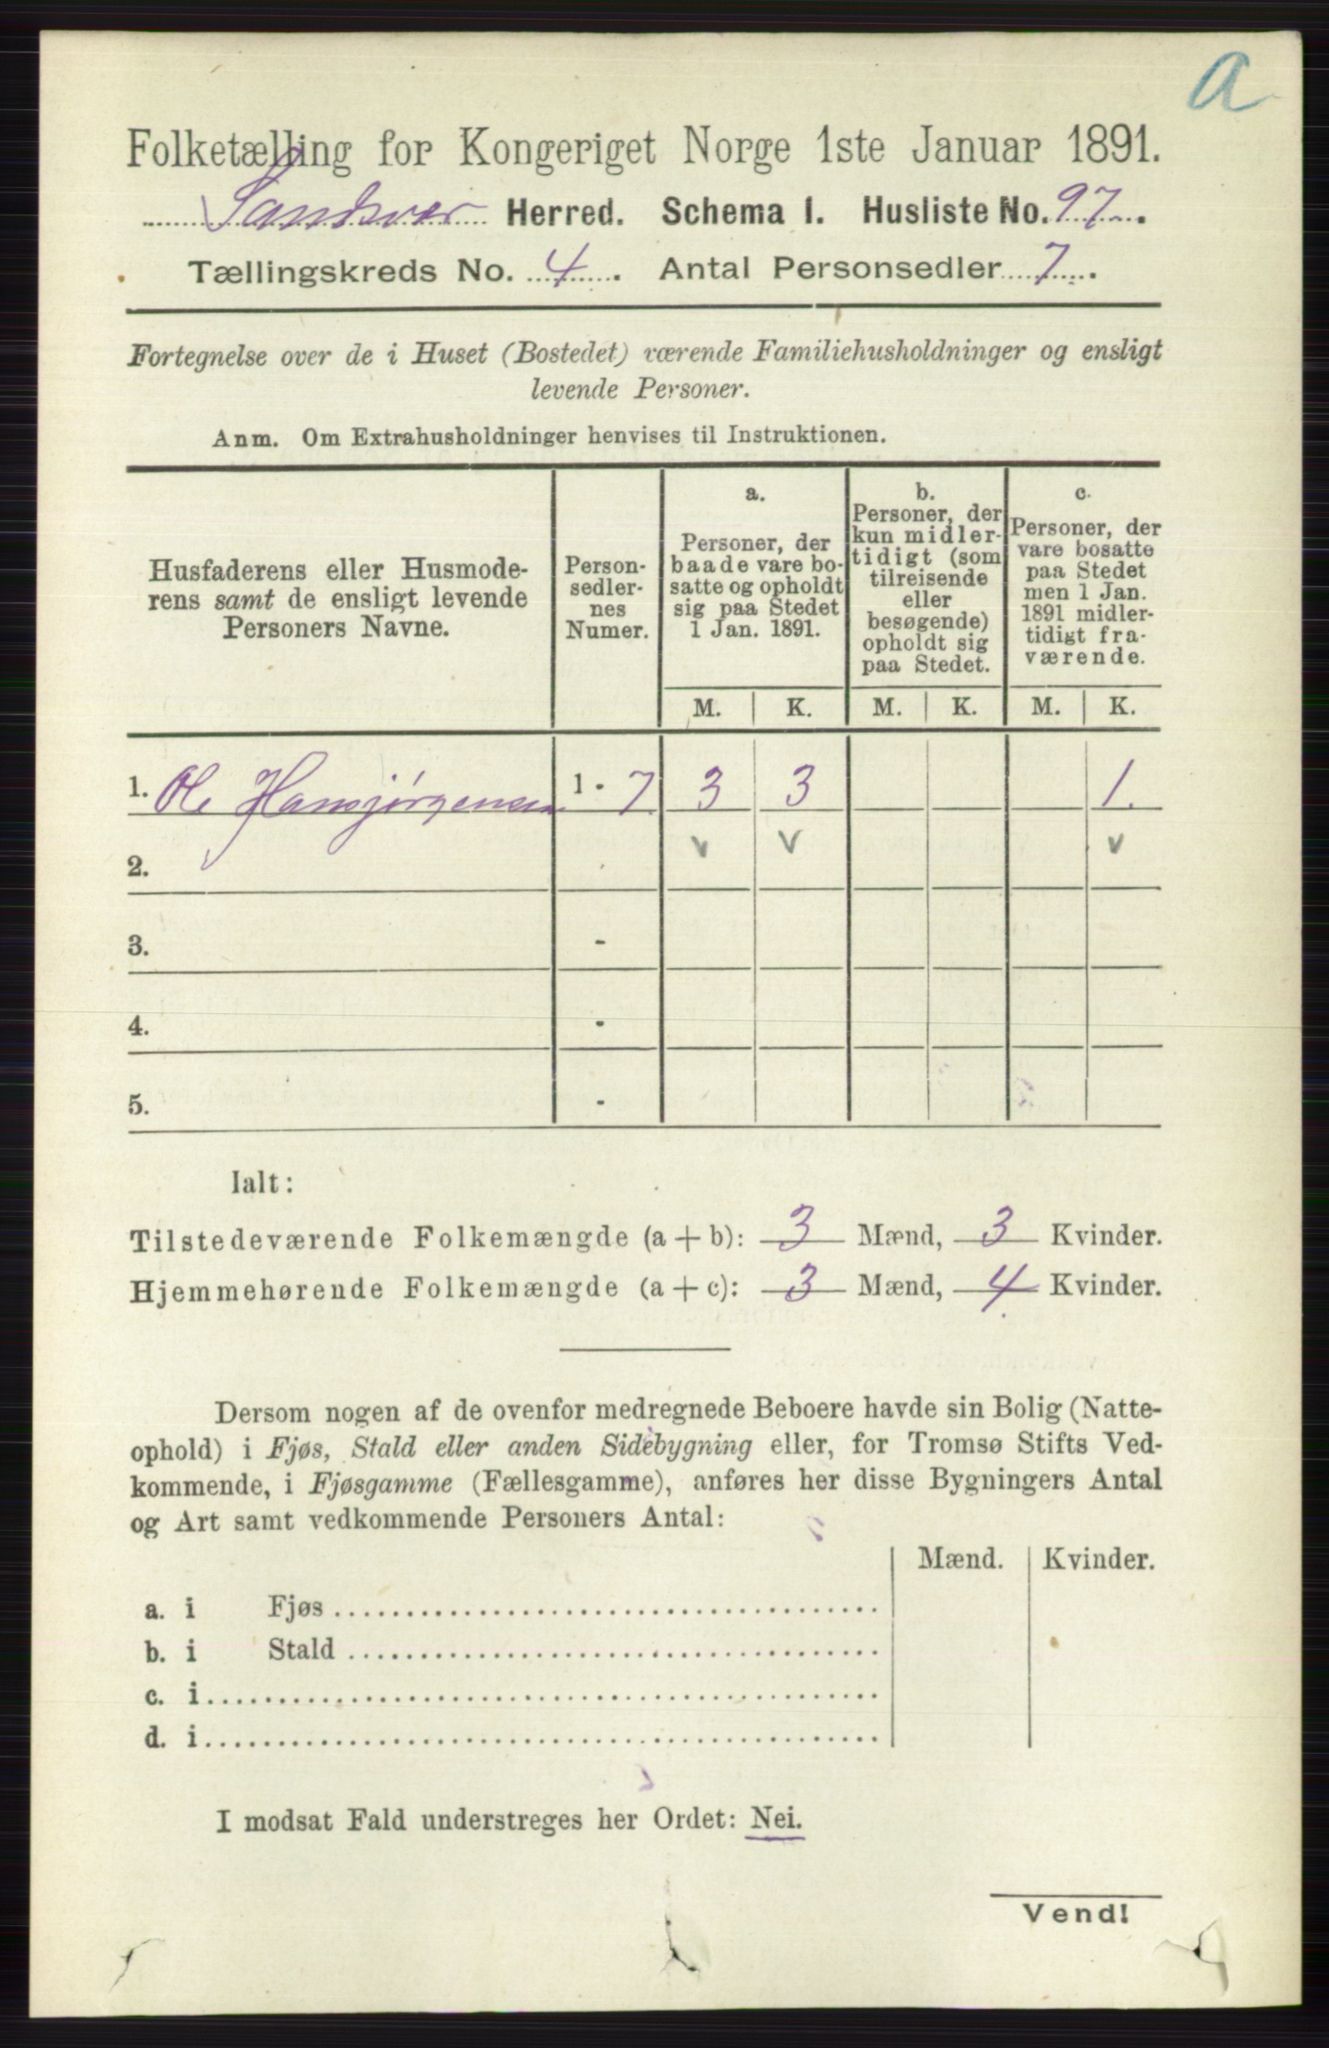 a
Folketælling for Kongeriget Norge 1ste Januar 1891.
Sandsver Herred. Schema 1. Husliste No. 97.
Tællingskreds No. 4. Antal Personsedler 7.
Fortegnelse over de i Huset (Bostedet) værende Familiehusholdninger og ensligt
levende Personer.
Anm. Om Extrahusholdninger henvises til Instruktionen.
Husfaderens eller Husmode-
rens samt de ensligt levende
Personers Navne.
Person-
sedler-
nes
Numer.
a.
Personer, der
baade vare bo-
satte og opholdt
sig paa Stedet
1 Jan. 1891.
b.
Personer, der
kun midler-
tidigt (som
tilreisende
eller
besøgende)
opholdt sig
paa Stedet.
c.
Personer, der
vare bosatte
paa Stedet
men 1 Jan.
1891 midler-
tidigt fra-
værende.
M. K. M. K. M. K.
1. Ole Hansjørgensen 1 - 7 3 3 1.
2. v v v
3. -
4. -
5. -
Ialt:
Tilstedeværende Folkemængde (a + b): 3 Mænd, 3 Kvinder.
Hjemmehørende Folkemængde (a + c): 3 Mænd, 4 Kvinder.
Dersom nogen af de ovenfor medregnede Beboere havde sin Bolig (Natte-
ophold) i Fjøs, Stald eller anden Sidebygning eller, for Tromsø Stifts Ved-
kommende, i Fjøsgamme (Fællesgamme), anføres her disse Bygningers Antal
og Art samt vedkommende Personers Antal:
Mænd. Kvinder.
a. i Fjøs
b. i Stald
c. i
d. i
I modsat Fald understreges her Ordet: Nei.
Vend!